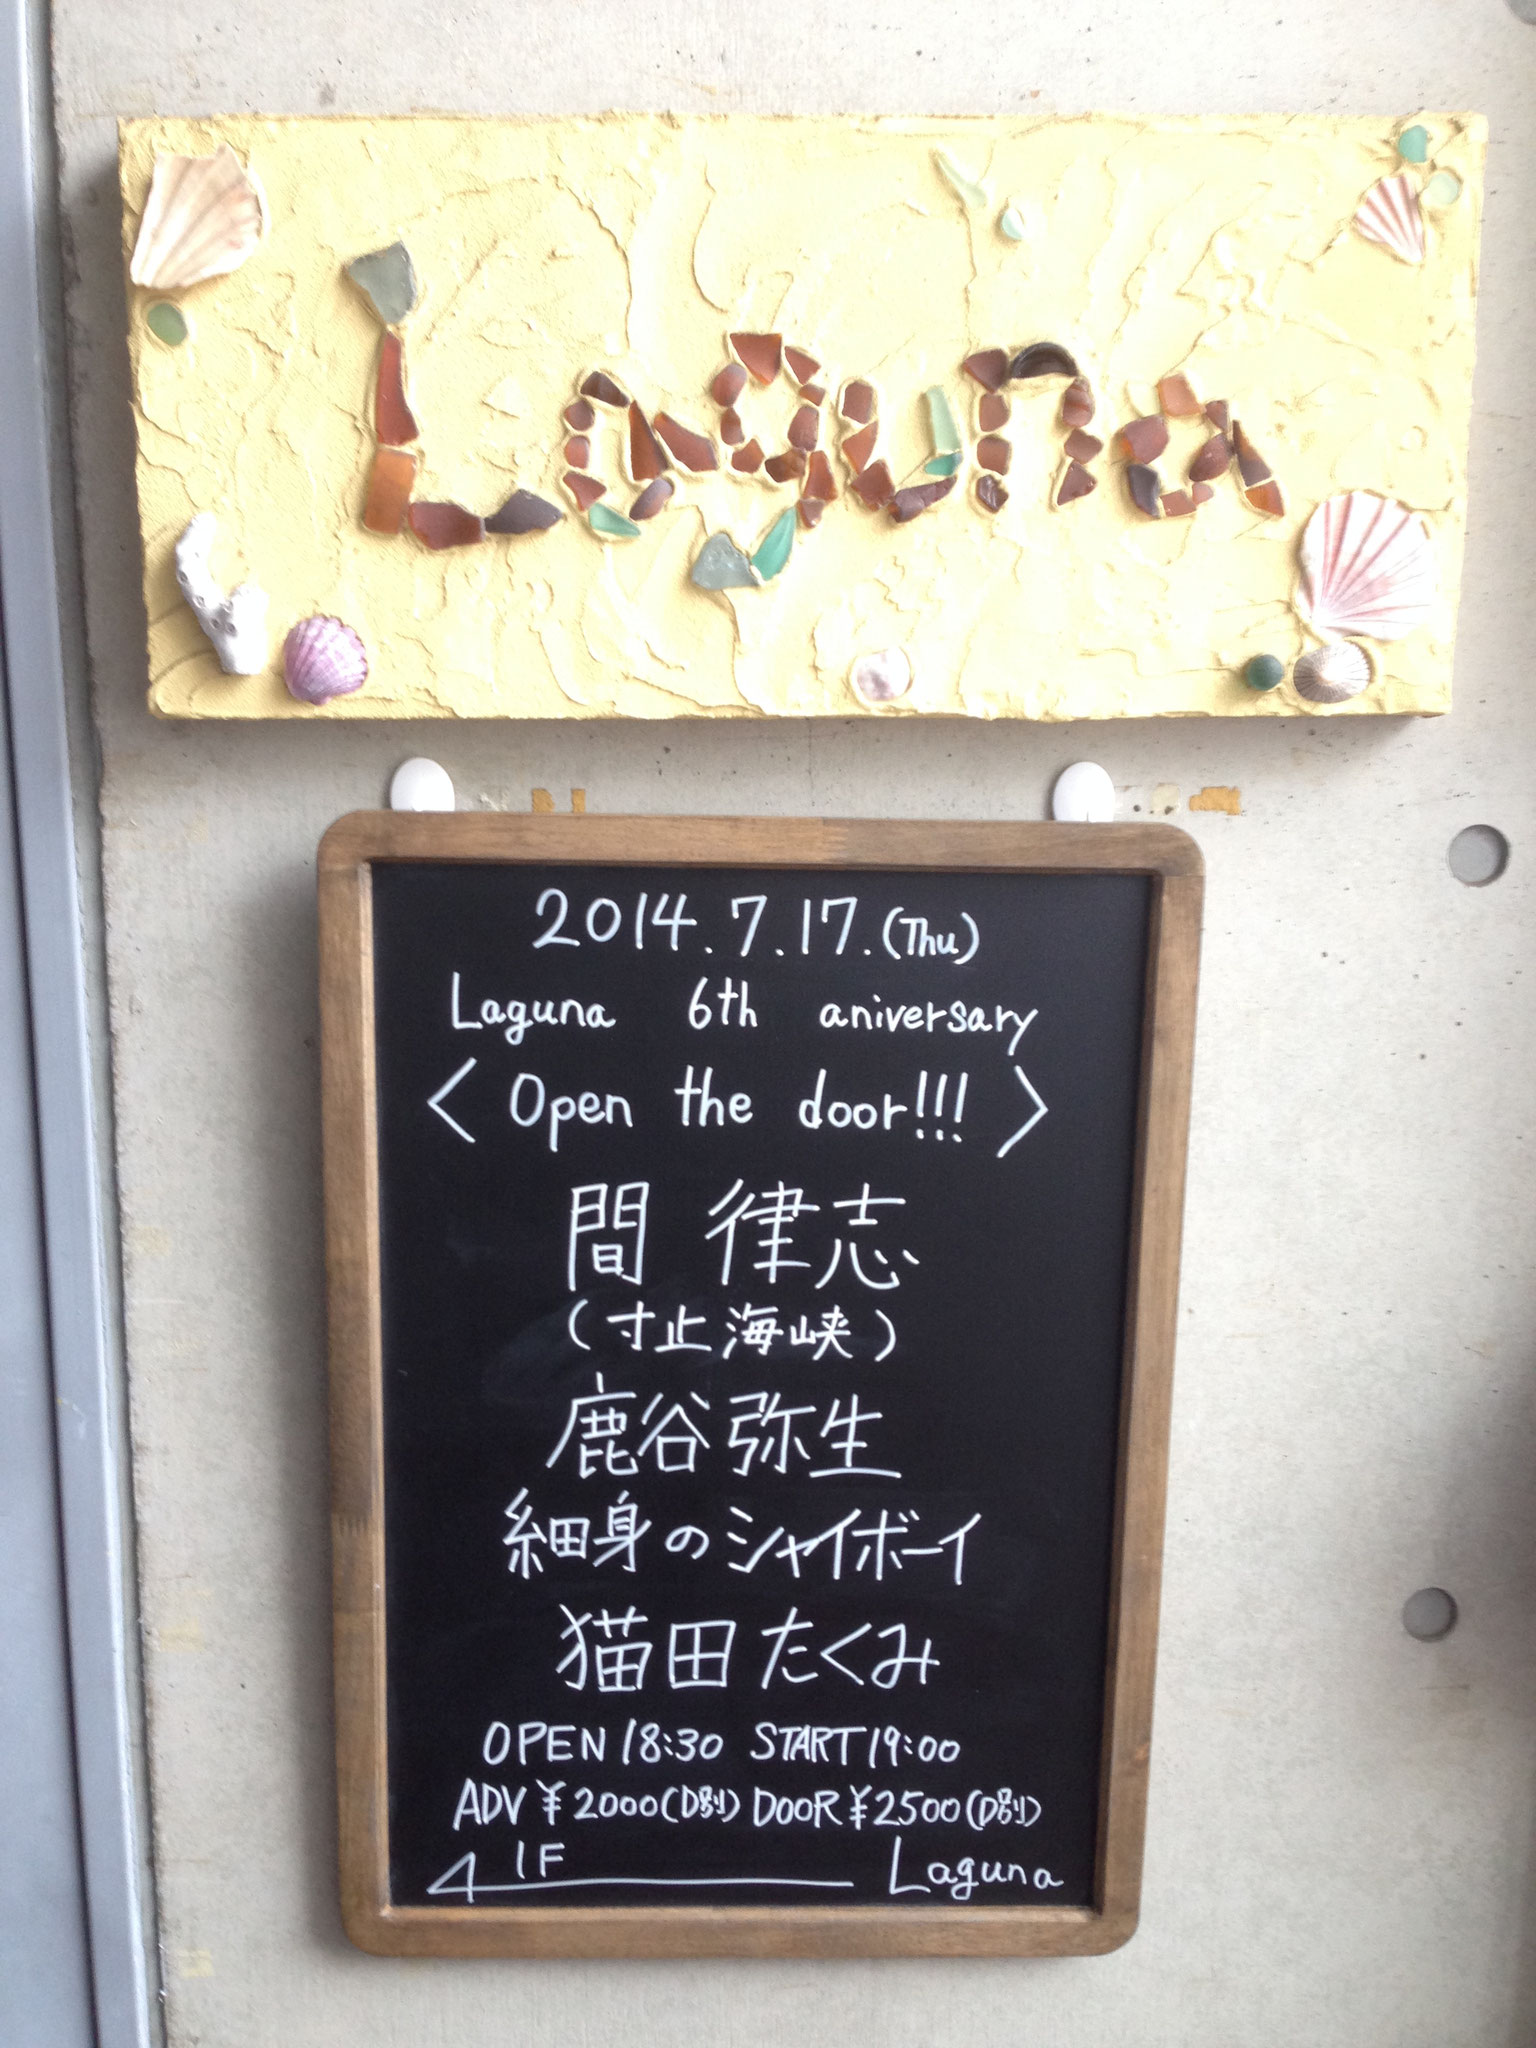 Laguna
2014.7.17.(Thu)
Laguna 6th aniversary
〈 Open the door!!! 〉
間 律志
(寸止海峡)
鹿谷弥生
細身のシャイボーイ
猫田たくみ
OPEN 18:30 START 19:00
ADV ¥2000(D別) DOOR ¥2500(D別)
1F Laguna